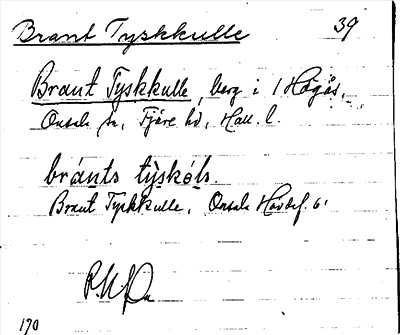 Brant Tyskkulle 39
Brant Tyskkulle, berg i 1 Högås,
Onsala sn, Fjäre hd, Hall. l.
bránts týskóls.
Brant Tyskkulle, Onsala
190